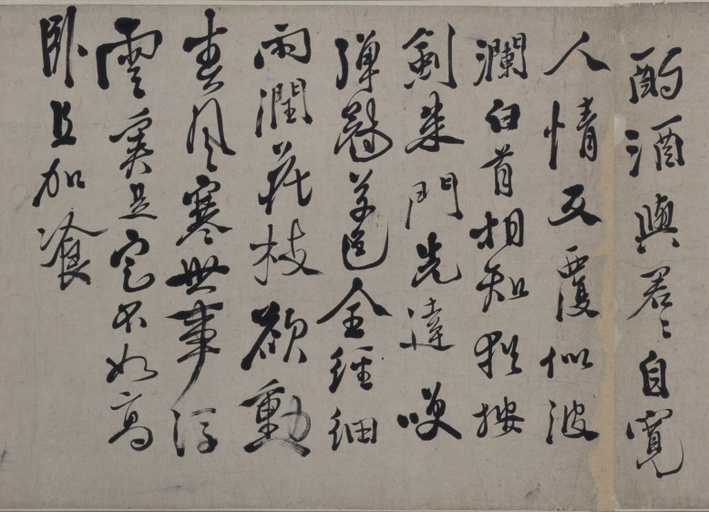 酌酒與君〻自寬
人情反覆似波
瀾白首相知猶按
劍朱門先達咲
彈冠草色全經細
雨潤花枝欲動
春風寒世事浮
雲定不如高
臥且加飡